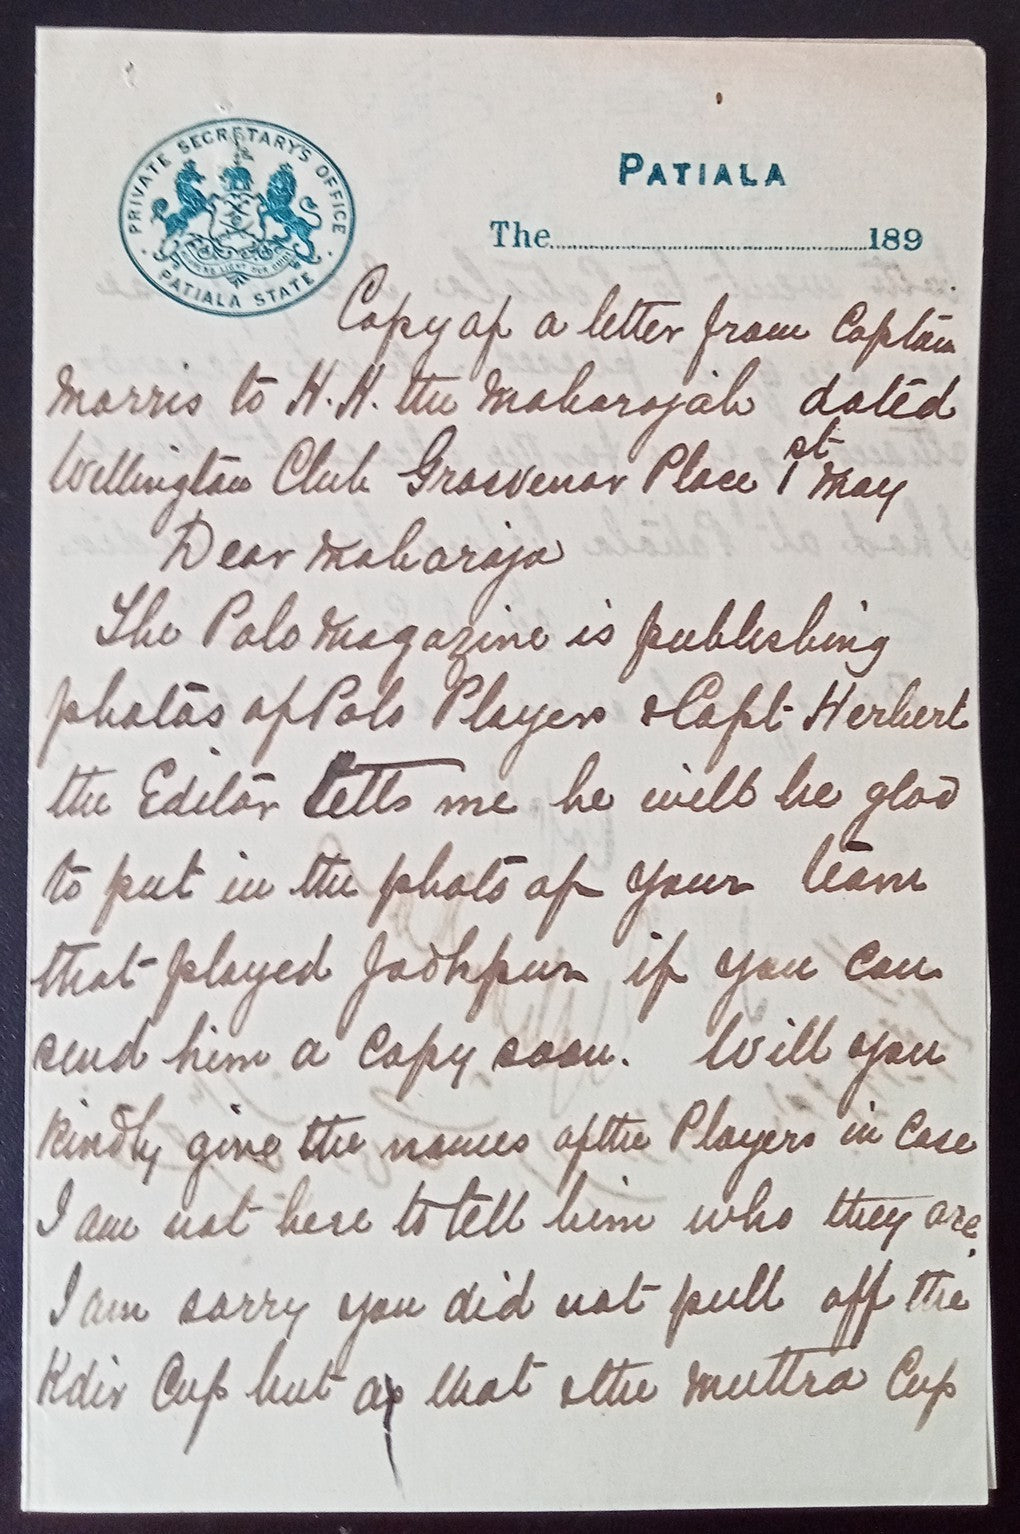 PRIVATE SECRETARY'S OFFICE
PATIALA STATE
PATIALA
The 189
Copy of a letter from Captain
Morris to H.H. the Maharajah dated
Wellington Club Grosvenor Place 1st May
Dear Maharaja
The Polo Magazine is publishing
photos of Polo Players & Capt Herbert
the Editor tells me he will be glad
to put in the photo of your team
that played Jodhpur if you can
send him a copy soon. Will you
kindly give the names of the Players in case
I am not here to tell him who they are.
I am sorry you did not pull off the
Kdir Cup but as that & the Muttra Cup